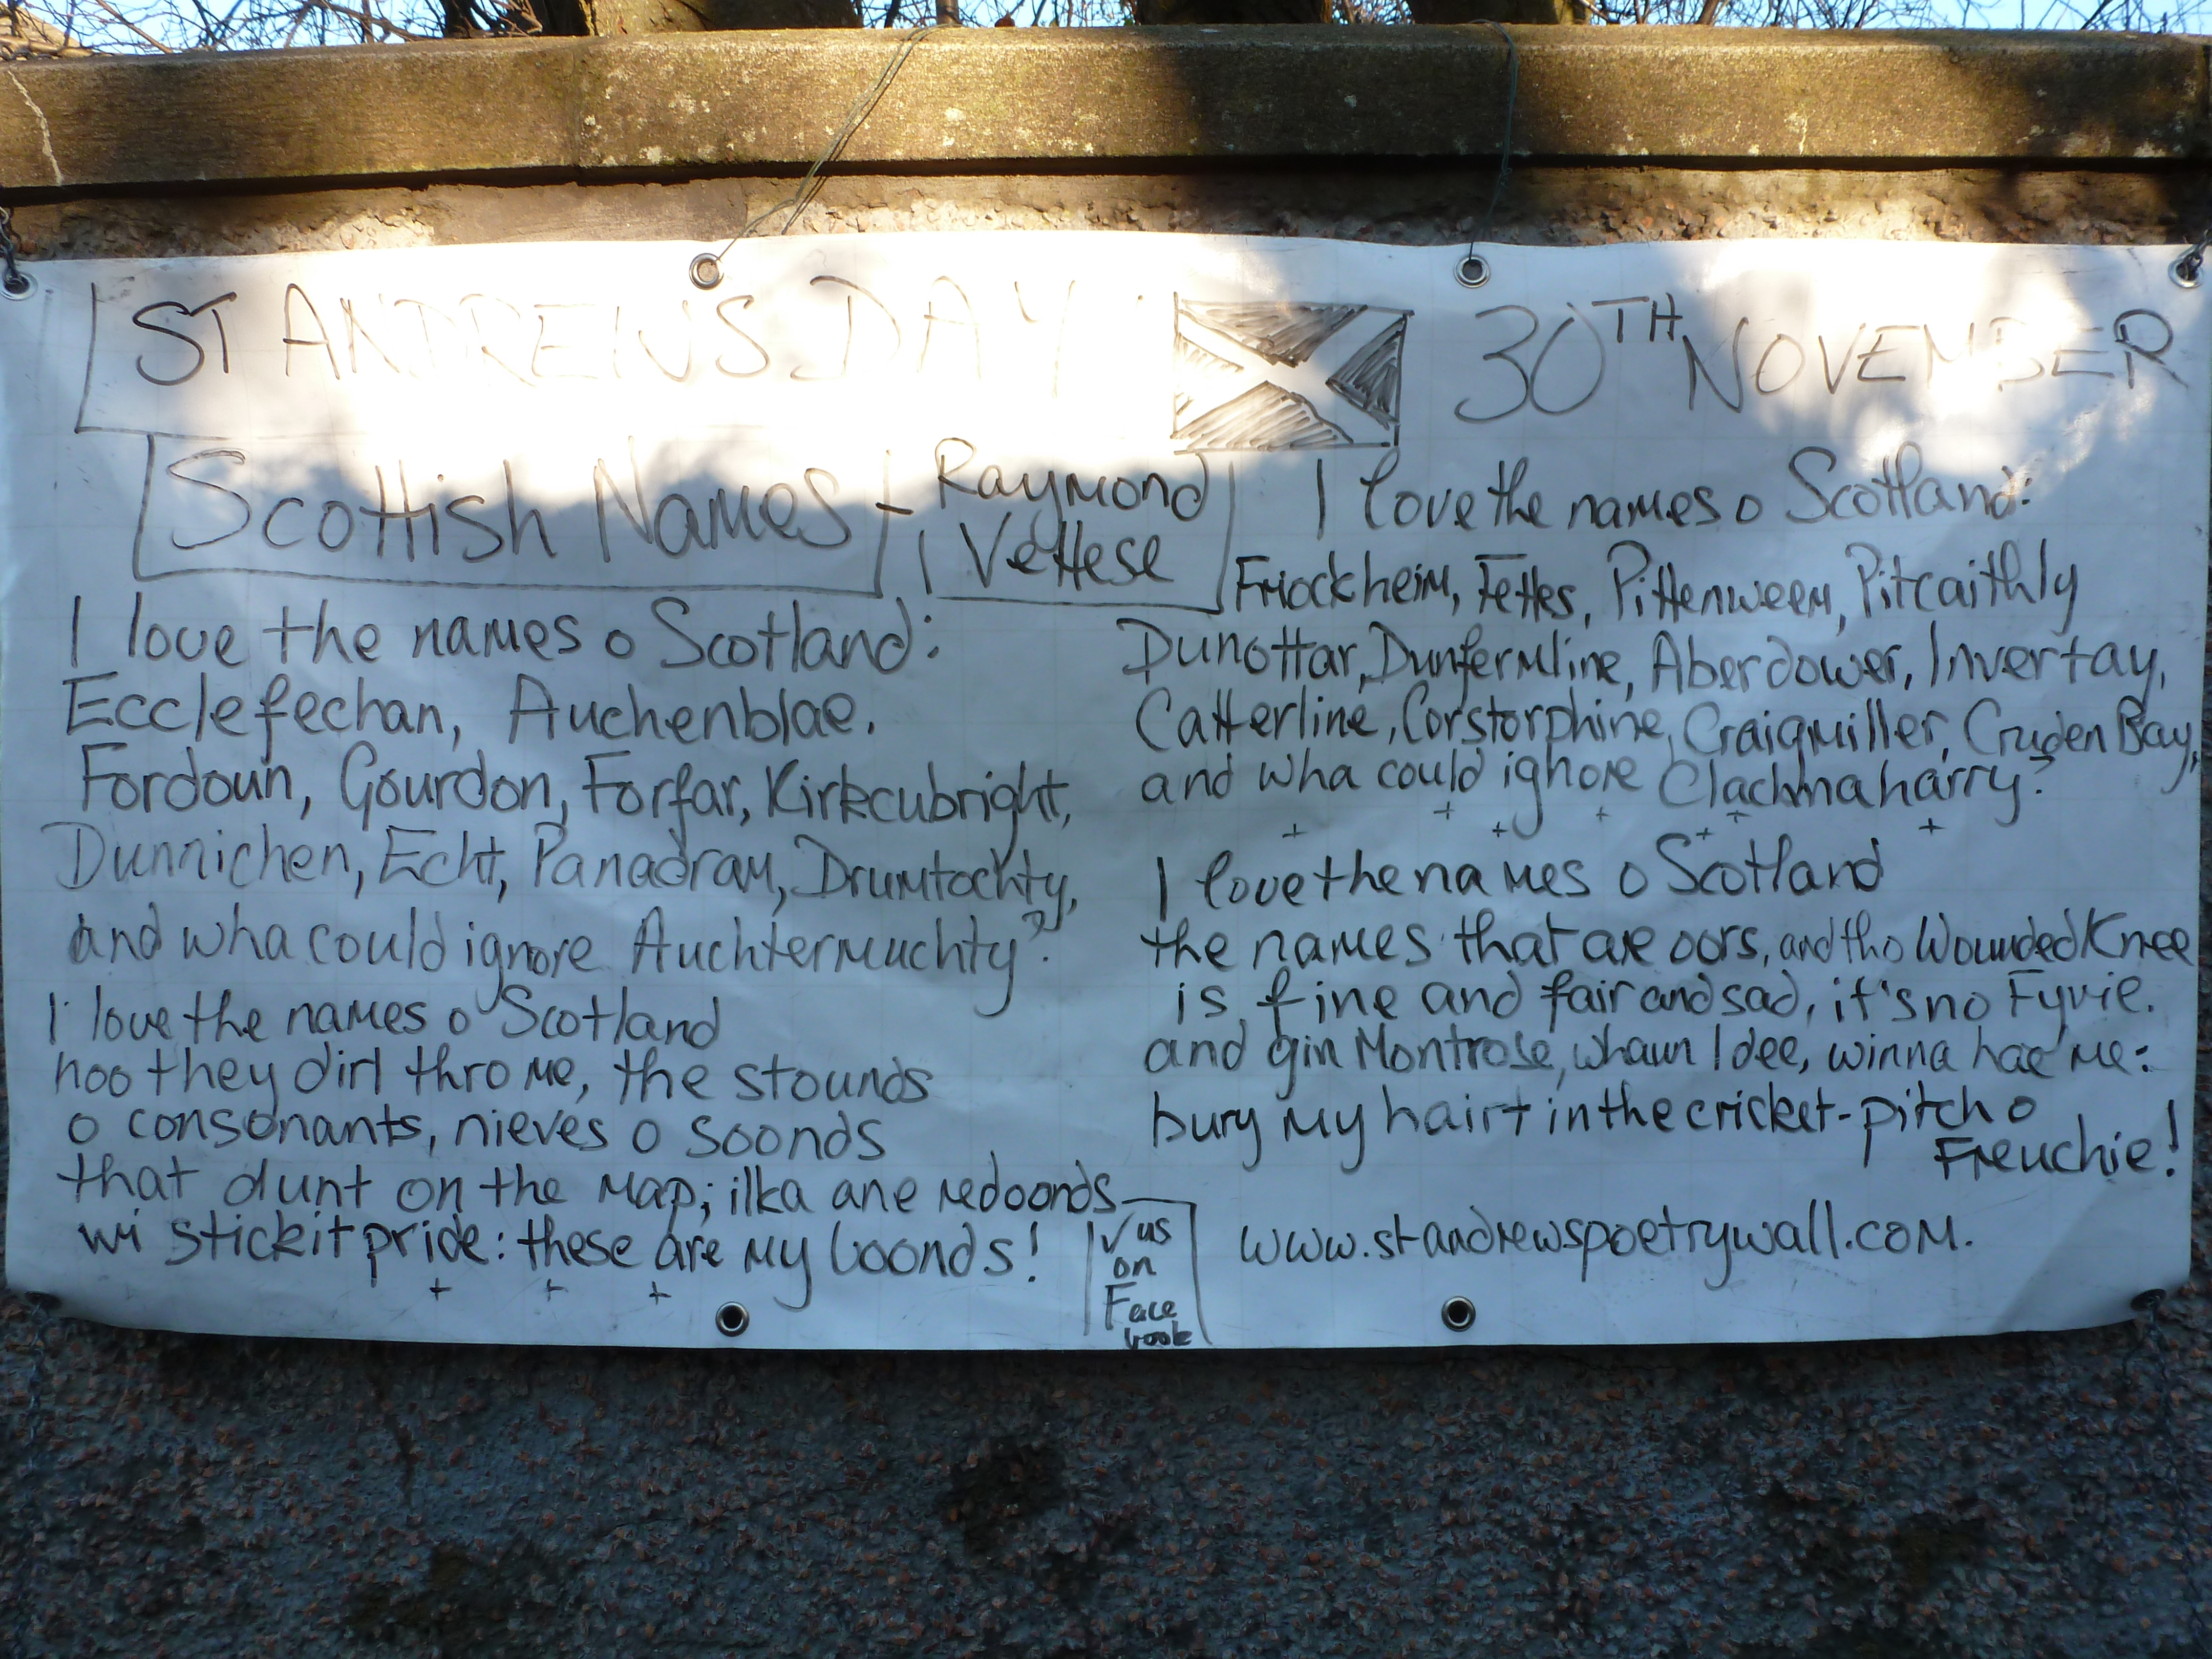 ST ANDREWS DAY
30TH NOVEMBER
Scottish Names - Raymond
Vettese
I love the names o Scotland:
Ecclefechan, Auchenblae.
Fordoun, Gourdon, Forfar, Kirkcubright,
Dunnichen, Echt, Panadram, Drumtochty,
and wha could ignore Auchtermuchty?
I love the names o Scotland
hoo they dirl thro me, the stounds
o consonants, nieves o soonds
that dunt on the map; ilka ane redoonds
wi stickit pride: these are my boonds!
+ + +
I love the names o Scotland:
Friockheim, Fettes, Pittenweem, Pitcaithly
Dunottar, Dunfermline, Aberdower, Invertay,
Catterline, Corstorphine, Craigmiller, Cruden Bay,
and wha could ignore Clachnaharry?
+ + + + + + +
I love the names o Scotland
the names that are oors, and tho Wounded Knee
is fine and fair and sad, it's no Fyvie.
and gin Montrose, whaun I dee, winna hae me:
bury my hairt in the cricket-pitch o
Freuchie!
✓ us
on
Face
book
www.standrewspoetrywall.com.